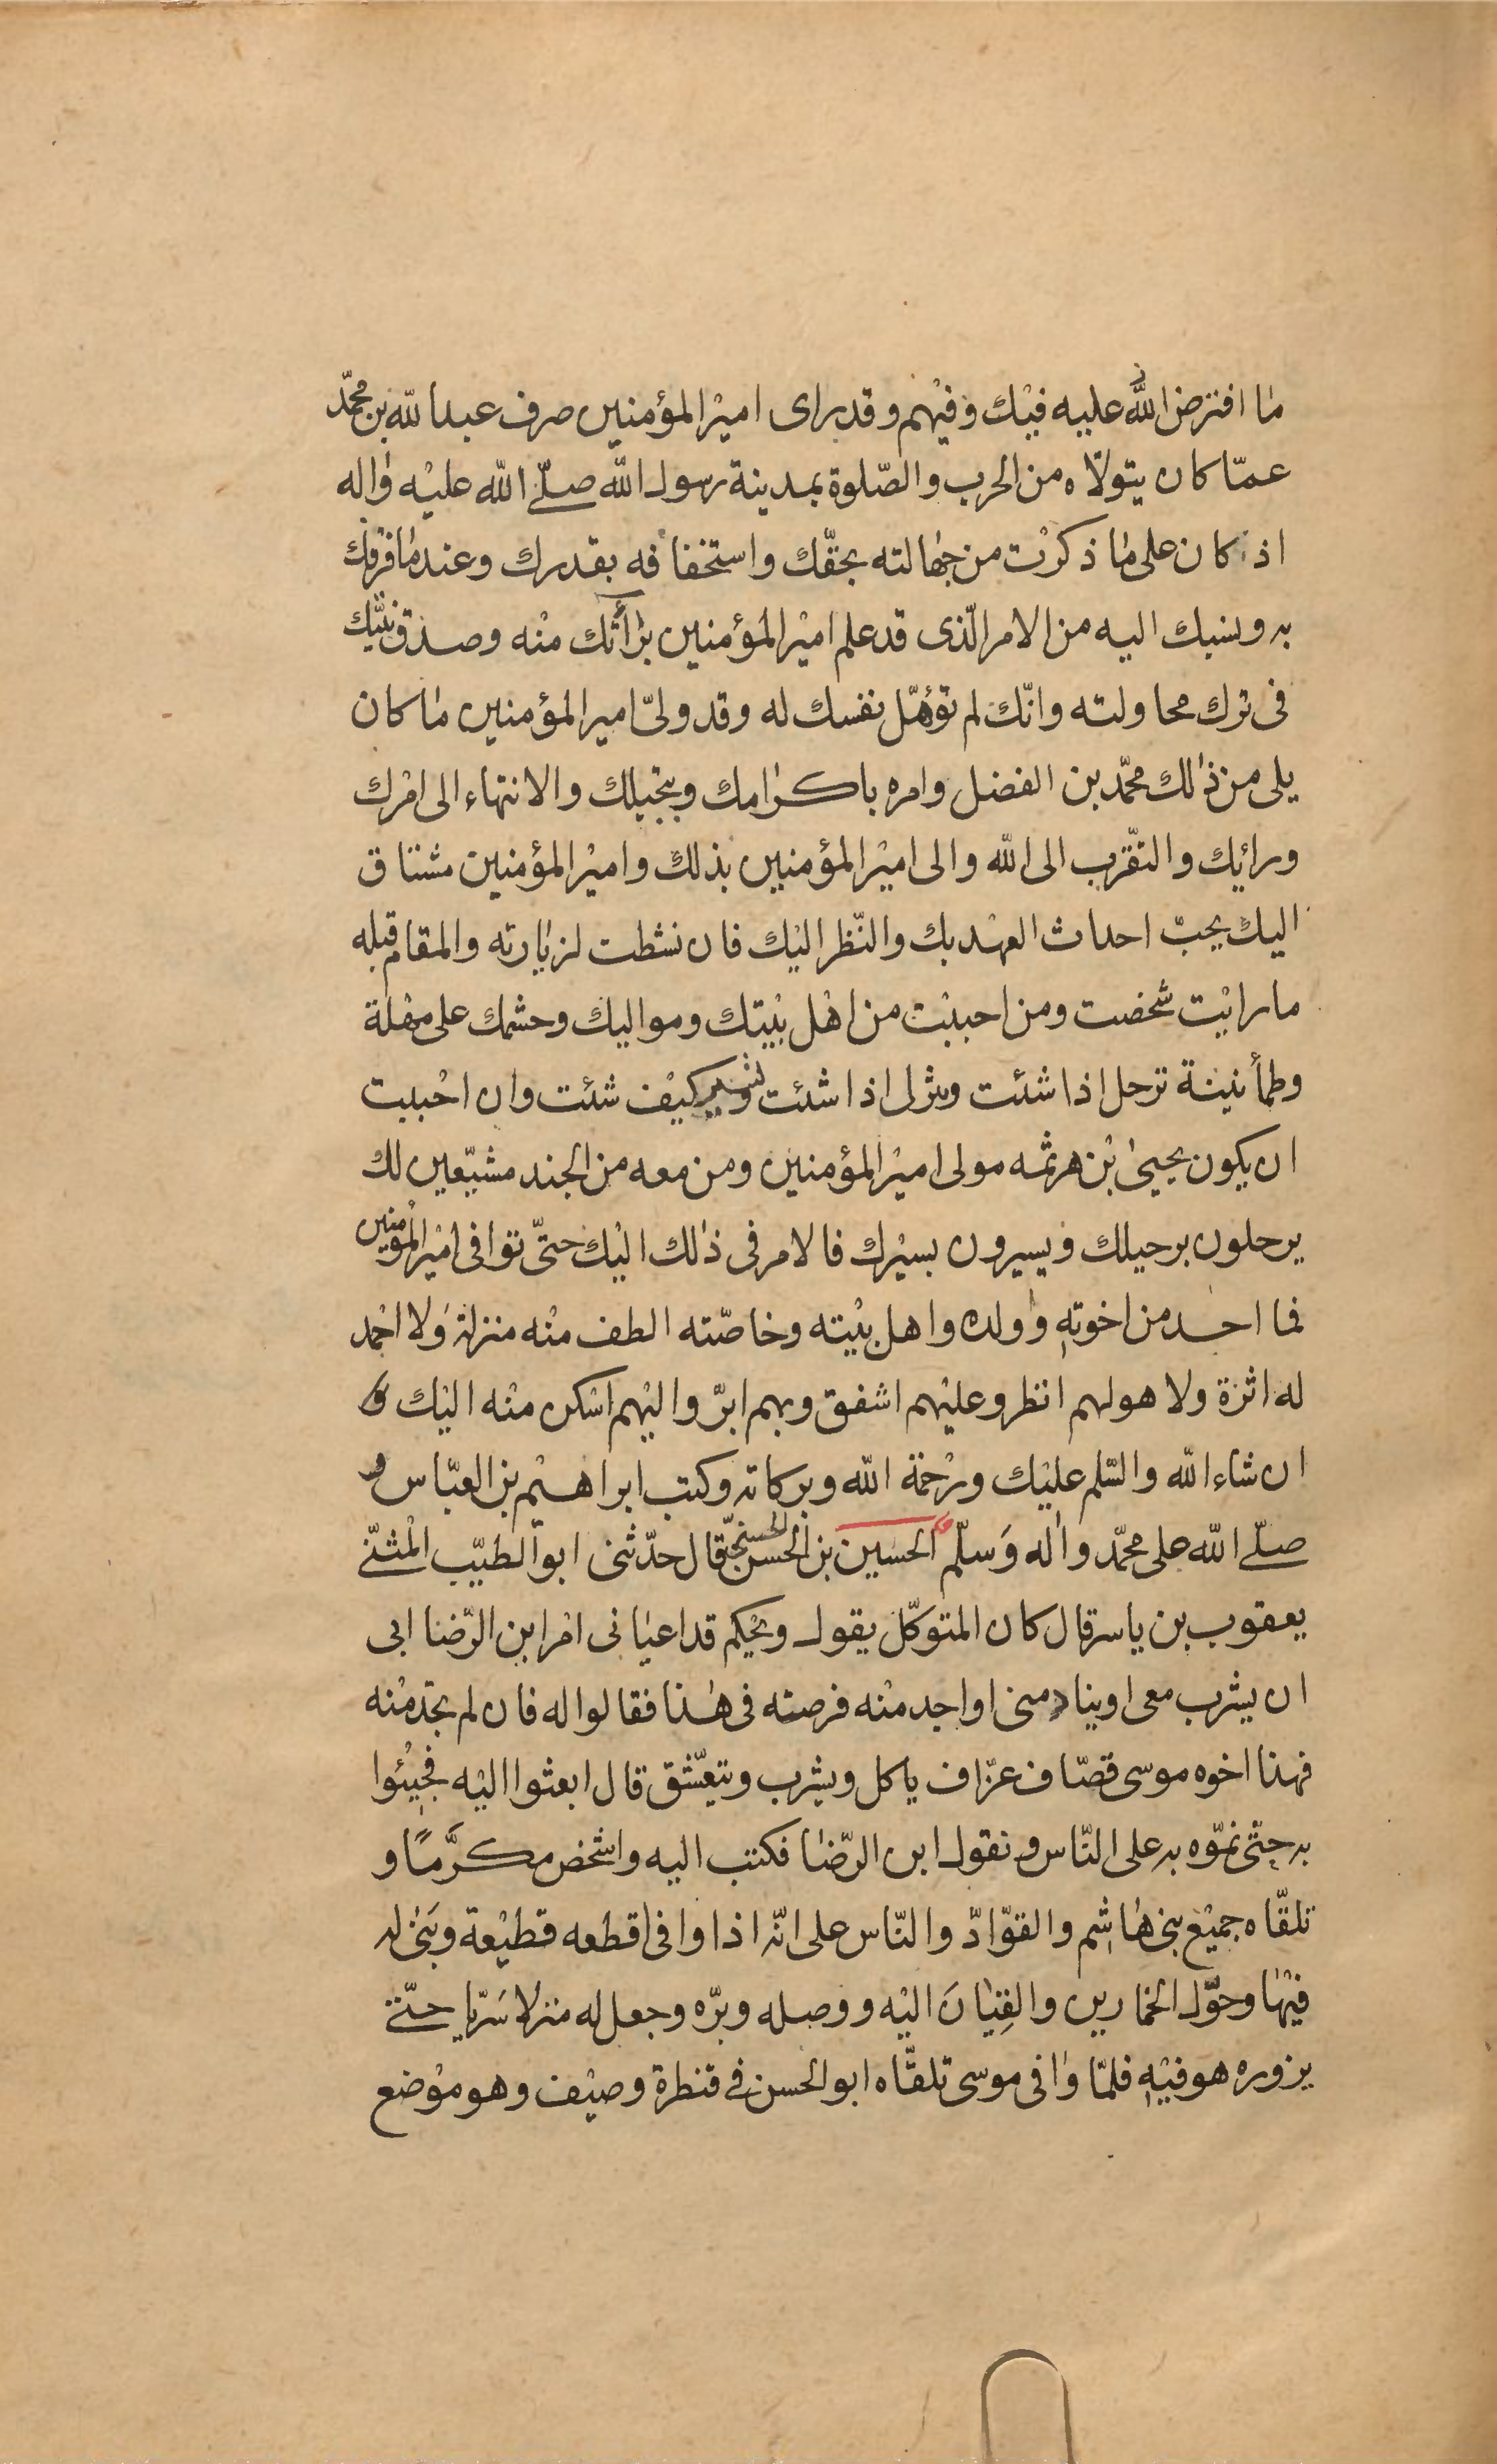 ما افترض الله عليه فيك وفيهم وقد راى امير المؤمنين صرف عبد الله بن محمّد
عمّا كان يتولّاه من الحرب والصّلوة بمدينة رسول الله صلّى الله عليه واله
اذ كان على ما ذكرت من جهالته بحقّك واستخفافه بقدرك وعند ما قرفك
به ونسبك اليه من الامر الّذى قد علم امير المؤمنين برأتك منه وصدق نيّتك
فى ترك محاولته وانّك لم تؤهّل نفسك له وقد ولىّ امير المؤمنين ما كان
يلى من ذلك محمّد بن الفضل وامره باكرامك وتبجيلك والانتهاء الى امرك
ورائيك والتقّرب الى الله والى امير المؤمنين بذلك وامير المؤمنين مشتاق
اليك يحبّ احداث العهد بك والنّظر اليك فان نشطت لزيارته والمقام قبله
ما رايت شخصت ومن احببت من اهل بيتك ومواليك وحشمك على مهلة
وطمأنينة ترحل اذا شئت وتنزل اذا شئت وتسير كيف شئت وان احببت
ان يكون يحيى بن هرثمه مولى امير المؤمنين ومن معه من الجند مشيّعين لك
يرحلون برحيلك ويسيرون بسيرك فالامر فى ذلك اليك حتّى توافى امير المؤمنين
فما احد من اخوته وولده واهل بيته وخاصّته الطف منه منزلة ولا احمد
له اثرة ولا هو لهم انظر وعليهم اشفق وبهم ابرّ واليهم اسكن منه اليك
ان شاء الله والسّلم عليك ورحمة الله وبركاته وكتب ابراهيم بن العبّاس و
صلّى الله على محمّد واله وسلّم الحسين بن الحسن الحسنىّ قال حدّثنى ابو الطيّب المثنّى
يعقوب بن ياسر قال كان المتوكّل يقول ويحكم قد اعيانى امر ابن الرّضا ابى
ان يشرب معى او ينادمنى او اجد منه فرصته فى هذا فقالوا له فان لم تجد منه
فهذا اخوه موسى قصّاف عزّاف ياكل ويشرب ويتعّشق قال ابعثوا اليه فجيئوا
به حتّى نموّه به على النّاس ونقول ابن الرّضا فكتب اليه واشخص مكرَّمًا و
تلقّاه جميع بنى هاشم والقوّادّ والنّاس على انّه اذا وافى اقطعه قطيعة وبنى له
فيها وحوّل الخمارين والقِيانَ اليه ووصله وبرّه وجعل له منزلا سَرّيا حتّى
يزوره هو فيه فلمّا وافى موسى تلقّاه ابو الحسن فى قنطرة وصيف وهو موضع